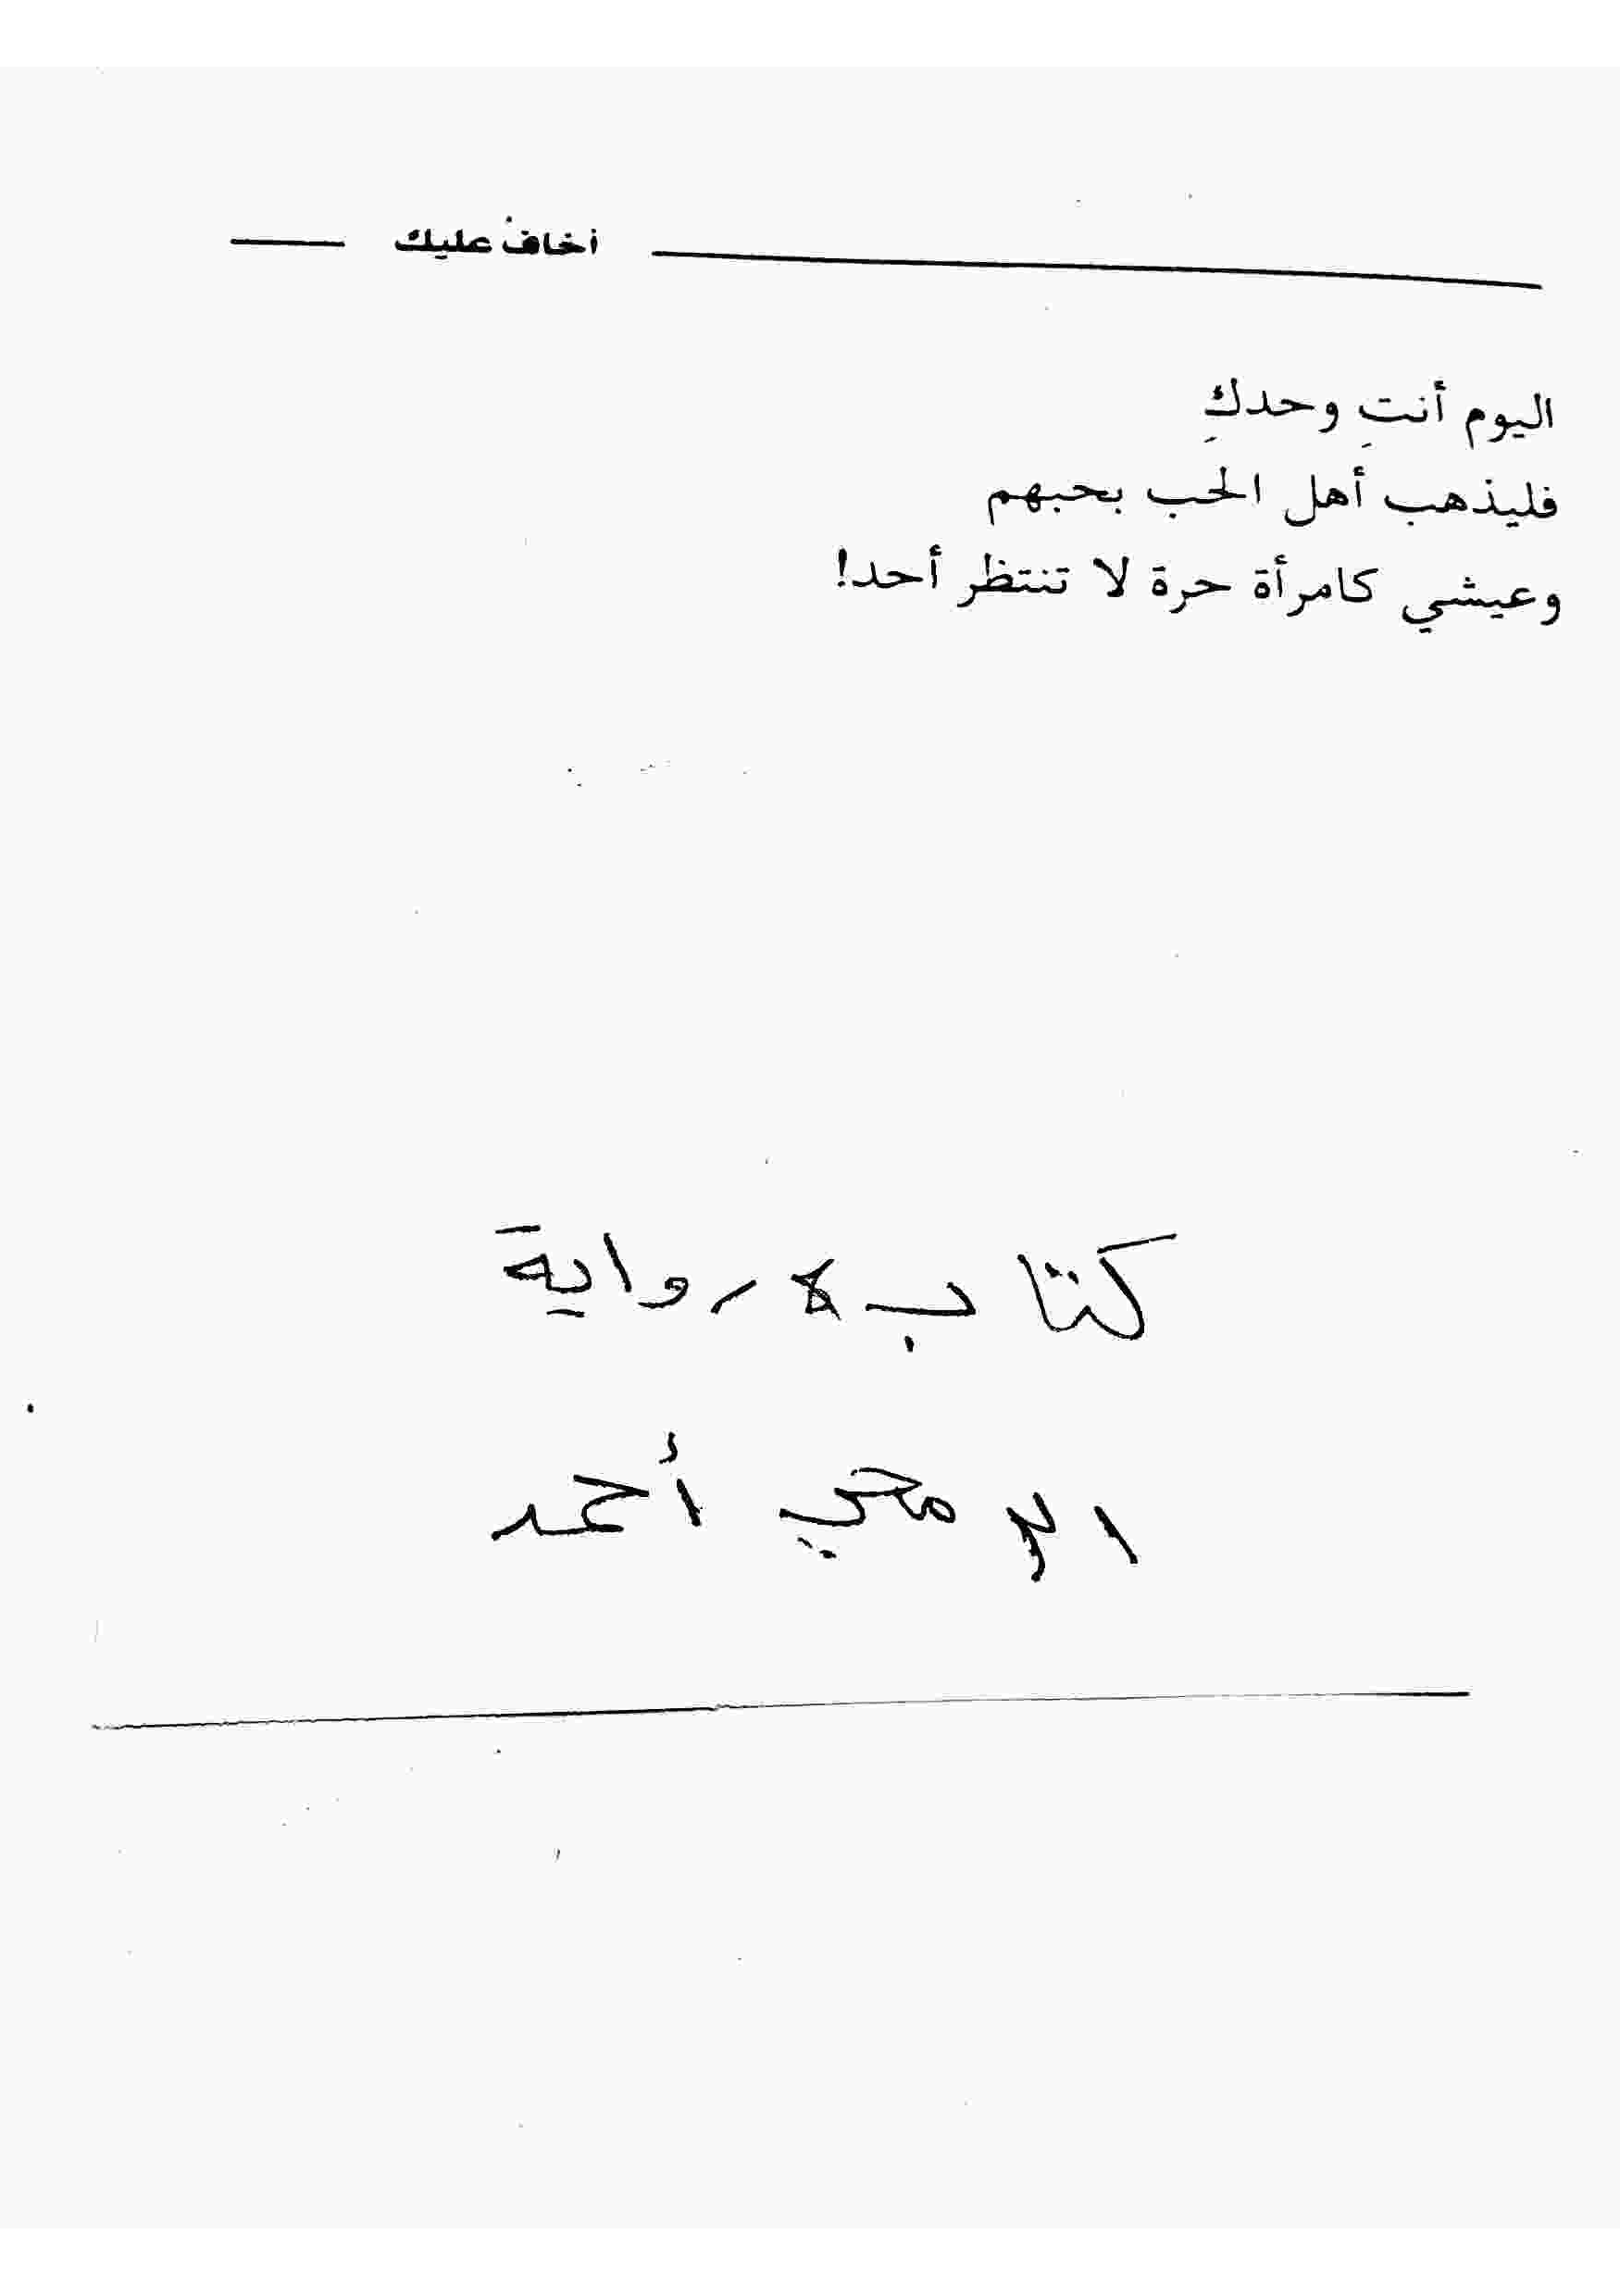 أخاف عليك
اليوم أنتِ وحدكِ
فليذهب أهل الحب بحبهم
وعيشي كامرأة حرة لا تنتظر أحد!
كتاب لا رواية
أحمد